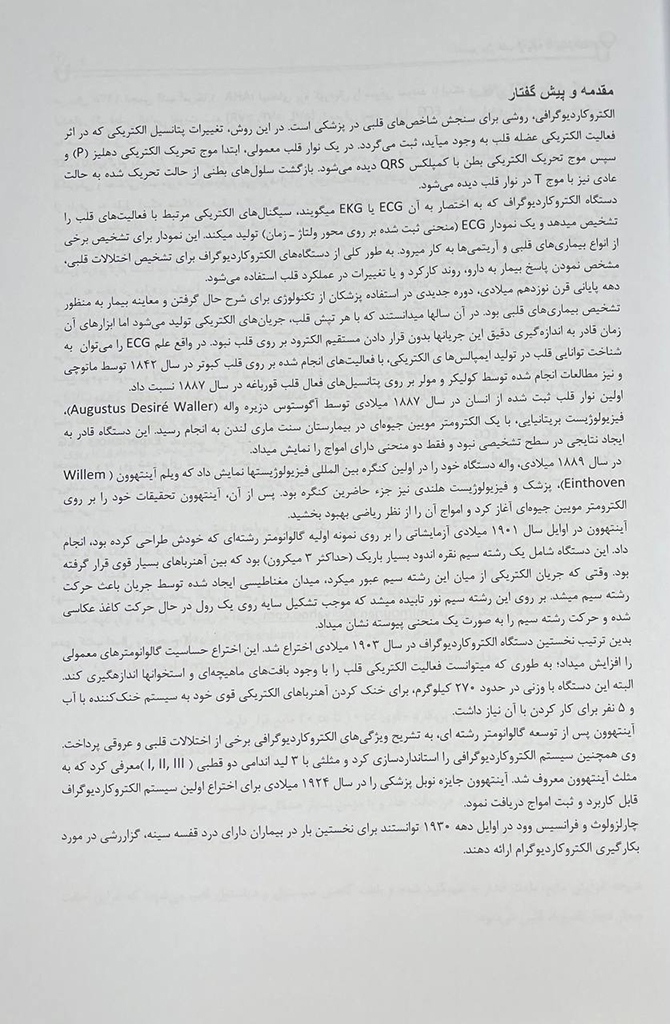 مقدمه و پیش گفتار
الکتروکاردیوگرافی، روشی برای سنجش شاخص‌های قلبی در پزشکی است. در این روش، تغییرات پتانسیل الکتریکی که در اثر
فعالیت الکتریکی عضله قلب به وجود میآید، ثبت می‌گردد. در یک نوار قلب معمولی، ابتدا موج تحریک الکتریکی دهلیز (P) و
سپس موج تحریک الکتریکی بطن با کمپلکس QRS دیده می‌شود. بازگشت سلول‌های بطنی از حالت تحریک شده به حالت
عادی نیز با موج T در نوار قلب دیده می‌شود.
دستگاه الکتروکاردیوگراف که به اختصار به آن ECG یا EKG میگویند، سیگنال‌های الکتریکی مرتبط با فعالیت‌های قلب را
تشخیص میدهد و یک نمودار ECG (منحنی ثبت شده بر روی محور ولتاژ ـ زمان) تولید میکند. این نمودار برای تشخیص برخی
از انواع بیماری‌های قلبی و آریتمی‌ها به کار میرود. به طور کلی از دستگاه‌های الکتروکاردیوگراف برای تشخیص اختلالات قلبی،
مشخص نمودن پاسخ بیمار به دارو، روند کارکرد و یا تغییرات در عملکرد قلب استفاده می‌شود.
دهه پایانی قرن نوزدهم میلادی، دوره جدیدی در استفاده پزشکان از تکنولوژی برای شرح حال گرفتن و معاینه بیمار به منظور
تشخیص بیماری‌های قلبی بود. در آن سالها میدانستند که با هر تپش قلب، جریان‌های الکتریکی تولید می‌شود اما ابزارهای آن
زمان قادر به اندازه‌گیری دقیق این جریانها بدون قرار دادن مستقیم الکترود بر روی قلب نبود. در واقع علم ECG را می‌توان به
شناخت توانایی قلب در تولید ایمپالس‌ها ی الکتریکی، با فعالیت‌های انجام شده بر روی قلب کبوتر در سال ۱۸۴۲ توسط ماتوچی
و نیز مطالعات انجام شده توسط کولیکر و مولر بر روی پتانسیل‌های فعال قلب قورباغه در سال ۱۸۸۷ نسبت داد.
اولین نوار قلب ثبت شده از انسان در سال ۱۸۸۷ میلادی توسط آگوستوس دزیره واله (Augustus Desiré Waller)،
فیزیولوژیست بریتانیایی، با یک الکترومتر مویین جیوه‌ای در بیمارستان سنت ماری لندن به انجام رسید. این دستگاه قادر به
ایجاد نتایجی در سطح تشخیصی نبود و فقط دو منحنی دارای امواج را نمایش میداد.
در سال ۱۸۸۹ میلادی، واله دستگاه خود را در اولین کنگره بین المللی فیزیولوژیستها نمایش داد که ویلم آینتهوون ( Willem
Einthoven)، پزشک و فیزیولوژیست هلندی نیز جزء حاضرین کنگره بود. پس از آن، آینتهوون تحقیقات خود را بر روی
الکترومتر مویین جیوه‌ای آغاز کرد و امواج آن را از نظر ریاضی بهبود بخشید.
آینتهوون در اوایل سال ۱۹۰۱ میلادی آزمایشاتی را بر روی نمونه اولیه گالوانومتر رشته‌ای که خودش طراحی کرده بود، انجام
داد. این دستگاه شامل یک رشته سیم نقره اندود بسیار باریک (حداکثر ۳ میکرون) بود که بین آهنرباهای بسیار قوی قرار گرفته
بود. وقتی که جریان الکتریکی از میان این رشته سیم عبور میکرد، میدان مغناطیسی ایجاد شده توسط جریان باعث حرکت
رشته سیم میشد. بر روی این رشته سیم نور تابیده میشد که موجب تشکیل سایه روی یک رول در حال حرکت کاغذ عکاسی
شده و حرکت رشته سیم را به صورت یک منحنی پیوسته نشان میداد.
بدین ترتیب نخستین دستگاه الکتروکاردیوگراف در سال ۱۹۰۳ میلادی اختراع شد. این اختراع حساسیت گالوانومترهای معمولی
را افزایش میداد؛ به طوری که میتوانست فعالیت الکتریکی قلب را با وجود بافت‌های ماهیچه‌ای و استخوانها اندازهگیری کند.
البته این دستگاه با وزنی در حدود ۲۷۰ کیلوگرم، برای خنک کردن آهنرباهای الکتریکی قوی خود به سیستم خنک‌کننده با آب
و ۵ نفر برای کار کردن با آن نیاز داشت.
آینتهوون پس از توسعه گالوانومتر رشته ای، به تشریح ویژگی‌های الکتروکاردیوگرافی برخی از اختلالات قلبی و عروقی پرداخت.
وی همچنین سیستم الکتروکاردیوگرافی را استانداردسازی کرد و مثلثی با ۳ لید اندامی دو قطبی ( I, II, III )معرفی کرد که به
مثلث آینتهوون معروف شد. آینتهوون جایزه نوبل پزشکی را در سال ۱۹۲۴ میلادی برای اختراع اولین سیستم الکتروکاردیوگراف
قابل کاربرد و ثبت امواج دریافت نمود.
چارلزولوث و فرانسیس وود در اوایل دهه ۱۹۳۰ توانستند برای نخستین بار در بیماران دارای درد قفسه سینه، گزاررشی در مورد
بکارگیری الکتروکاردیوگرام ارائه دهند.